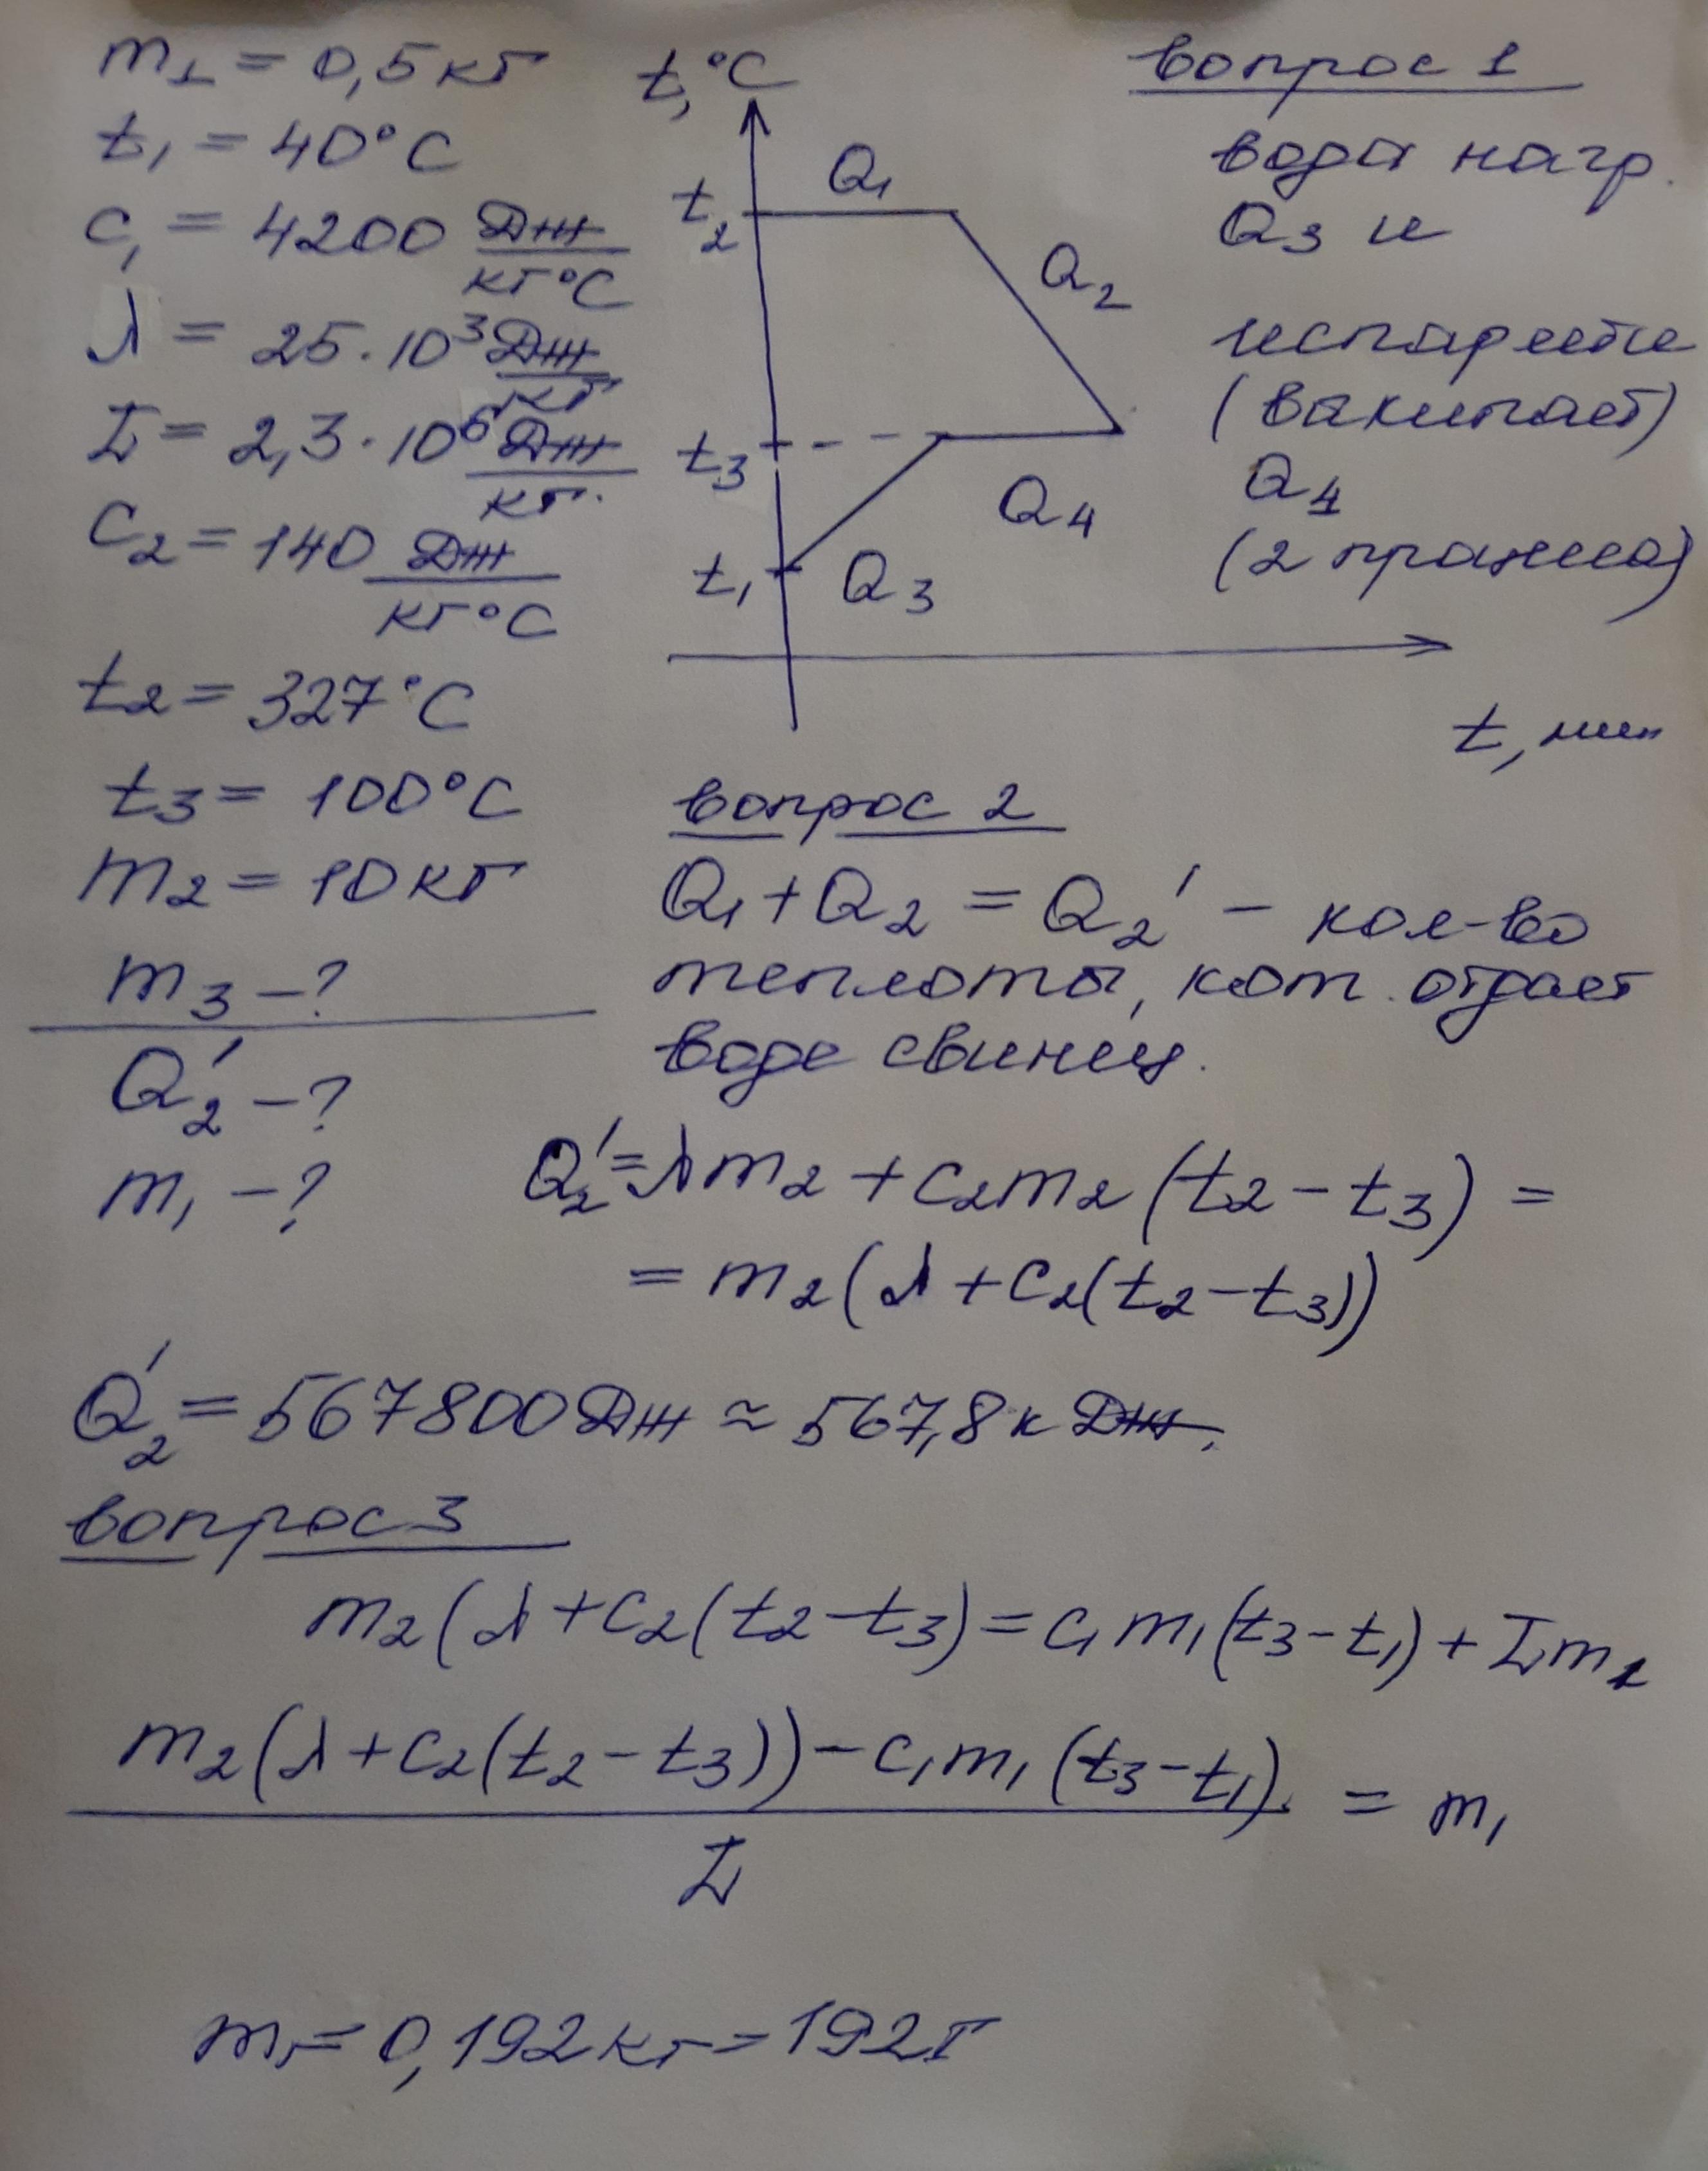 m₁ = 0,5 кг
t₁ = 40°C
c₁ = 4200 Дж/кг°C
λ = 25·10³ Дж/кг
L = 2,3·10⁶ Дж/кг.
C₂ = 140 Дж/кг°C
t₂ = 327°C
t₃ = 100°C
m₂ = 10 кг
m₃ - ?
Q₂' - ?
m₁ - ?
t, °C
t₂
t₃
t₁
Q₁
Q₂
Q₄
Q₃
t, мин
вопрос 1
вода нагр.
Q₃ и
(выкипает)
Q₄
вопрос 2
Q₁ + Q₂ = Q₂' - кол-во
теплоты, кот. отдает
воде свинец.
Q₂' = λm₂ + c₂m₂(t₂ - t₃) =
= m₂(λ + c₂(t₂ - t₃))
Q₂' = 567800 Дж ≈ 567,8 кДж.
вопрос 3
m₂(λ + c₂(t₂ - t₃) = c₁m₁(t₃ - t₁) + Lm₁
m₂(λ + c₂(t₂ - t₃)) - c₁m₁(t₃ - t₁) / L = m₁
m₁ = 0,192 кг = 192 г